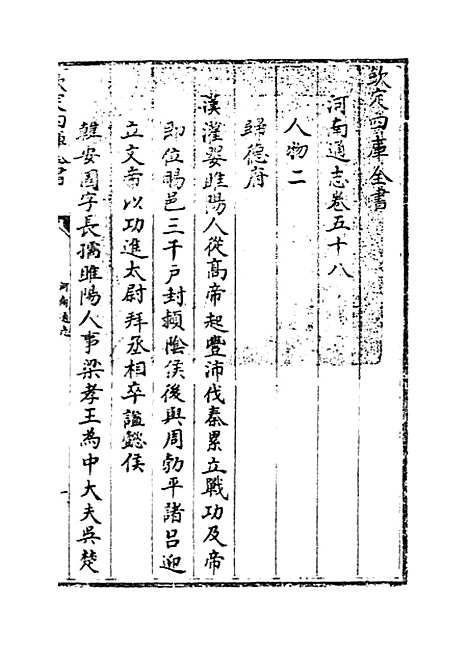 欽定四庫全書
河南通志卷五十八
人物二
歸德府
漢灌嬰睢陽人從高帝起豐沛伐秦累立戰功及帝
即位賜邑三千戶封潁陰侯後與周勃平諸呂迎
立文帝以功進太尉拜丞相卒諡懿侯
韓安國字長孺睢陽人事梁孝王為中大夫吳楚
欽定四庫全書
河南通志
一